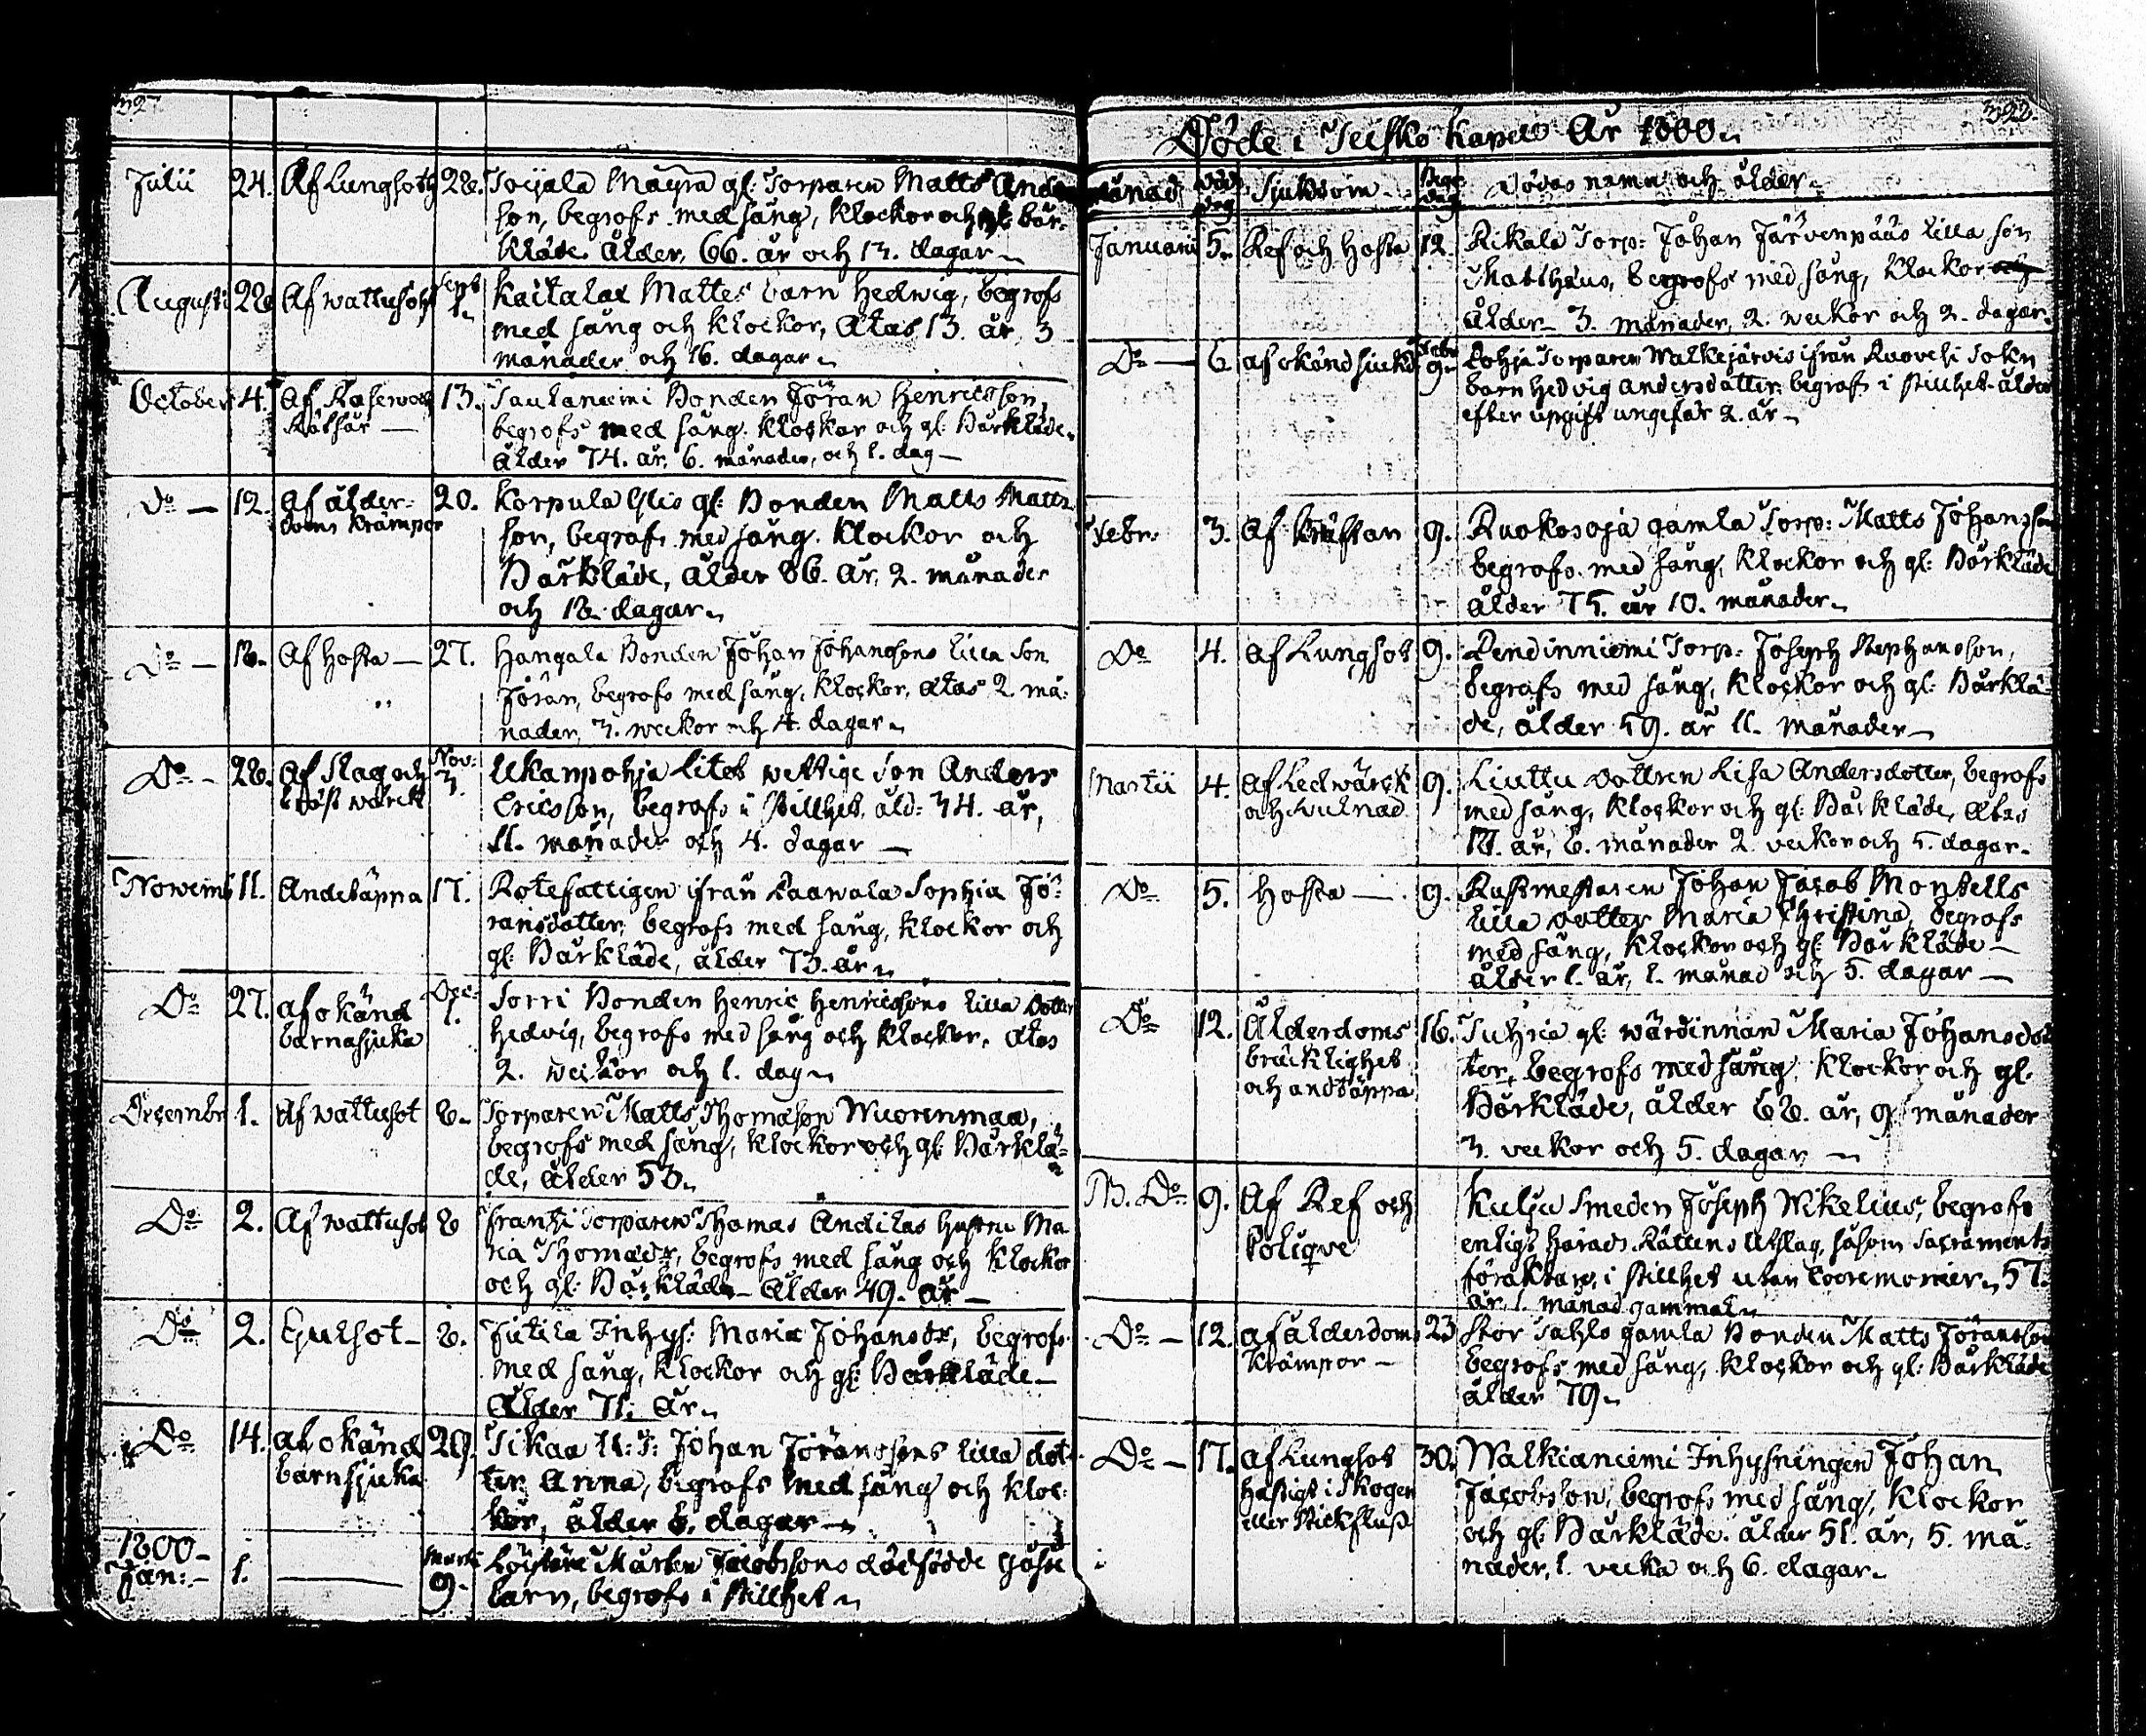 327
Julii 24. Af Lungsoth 28. Toijala Mäyrä gl: Torparen Matts Anders
son, begrofs med sång, klockor och gl: bår-
kläde. ålder, 66. år och 13. dagar
Augusti 28 Af wattusoht Sept 1. Kaitalax Mattes barn Hedwig, begrofs
med sång och klockor, Ætas 13. år, 3
månader och 16. dagar
October 4. Af Rasewad 13. Saulaniemi Bonden Jöran Henricsson,
Rötsår begrofs med sång. klockor och gl: Bårkläde.
ålder 74. år, 6. månader, och 1. dag
Do 12. Af ålder- 20. Korpula gl: Bonden Matts Matts
doms krämpor son, begrofs med sång. klockor och
Bårkläde, ålder 86. år, 2. månader
och 18. dagar
Do 18. Af Hosta 27. Hangala Bonden Johan Johansons lilla son
Jöran, begrofs med sång, klockor, Ætas 2. må-
nader, 3. weckor och 4. dagar
Do 28. Af Slag och Nov: 3. Ukanpohja litet wettige son Anders
bröst wärck Ericsson, begrofs i stillhet. åld: 34. år,
11. månader och 4. dagar
Novemb 11. Andetäppa 17. Rotefattigen ifrån Laawala Sophia Jö-
ransdotter, begrofs med sång, klockor och
gl: Bårkläde, ålder 73. år
Do 27. af okänd Dec: 1. Sorri Bonden Henric Henricsons lilla Dotter
barnasjuka Hedvig, begrofs med sång och klockor, Ætas
2. weckor och 1. dag
Decembr 1. Af wattusot 8. Torparen Matts Thomason Wuorenmaa,
begrofs med sång, klockor och gl: Bårklä-
de, ålder 53.
Do 2. Af wattusot 8 Frantzi Torparen Thomas Andilas hustru Ma
ria Thomadr, begrofs med sång och klockor
och gl: Bårkläde ålder 49. år
Do 2. Gulsot 8. Jutila Inhys: Maria Johansdr, begrofs
med sång, klockor och gl: Bårkläde
Ålder 71. År
Do 14. af okänd 29. Sikaa Johan Jöranssons lilla dot-
barnsjuka ter Anna, begrofs med sång och kloc-
kor, ålder 6. dagar
1800
Jan: 1. Martii 9. Mårten Jacobssons dödfödde
barn, begrofs i stillhet
328
Döde i Teisko Kapell År 1800
Månad Död dag Sjukdom Begr dag Dödas namn och ålder
Januarii 5. Ref och Hosta 12. Rikala Torp: Johan Järvenpääs lilla son
Matthæus, begrofs med sång, klockor och
ålder 3. månader, 2. weckor och 2. dagar.
Do 6 af okänd siuka Febr 9. Pohja Torparen Walkejärvis ifrån Ruovesi Sokn
barn Hedvig Andersdotter, begrofs i stillhet. ålder
efter upgift ungefär 2. år
Febr. 3. Af kräftan 9. Ruokosoja gamla Torp: Matts Johansson
begrofs med sång, klockor och gl: Bårkläde
ålder 75. år 10. månader
Do 4. af Lungsot 9. Pendinniemi Torp: Joseph Stephansson,
begrofs med sång, klockor och gl: Bårklä-
de, ålder 59. år 11. månader
Martii 4. af Ledwärck 9. Liuttu dottren Lisa Andersdotter, begrofs
och Svulnad med sång, klockor och gl: Bårkläde, Ætas
år, 6. månader 2. veckor och 5. dagar.
Do 5. Hosta 9. Rustmestaren Johan Jacob Montells
lilla dotter Maria Christina, begrofs
med sång, klockor och gl: Bårkläde
ålder 1. år, 1. månad och 5. dagar
Do 12. Ålderdoms 16. Suhria gl: wärdinnan Maria Johansdot
bräcklighet ter, begrofs med sång, klockor och gl.
och andtäppa Bårkläde, ålder 68. år, 9. månader
3. veckor och 5. dagar
M. Do 9. Af Ref och Kulju Smeden Joseph Wikelius, begrofs
Kolique enligt Härads Rättens Utslag, såsom Sacraments
föraktare, i stillhet utan Ceremonier, 57.
år, 1. månad gammal
Do 12. af ålderdoms 23 Stor Sahlo gamla Bonden Matts Jöransson
krämpor begrofs med sång, klockor och gl: Bårkläde
ålder 79
Do 17. af Lungsot 30. Walkianiemi Inhysningen Johan
hastigt i Skogen Jacobsson, begrofs med sång, klockor
eller Stickfluss och gl: Bårkläde. ålder 51. år, 5. må-
nader, 1. vecka och 6. dagar.